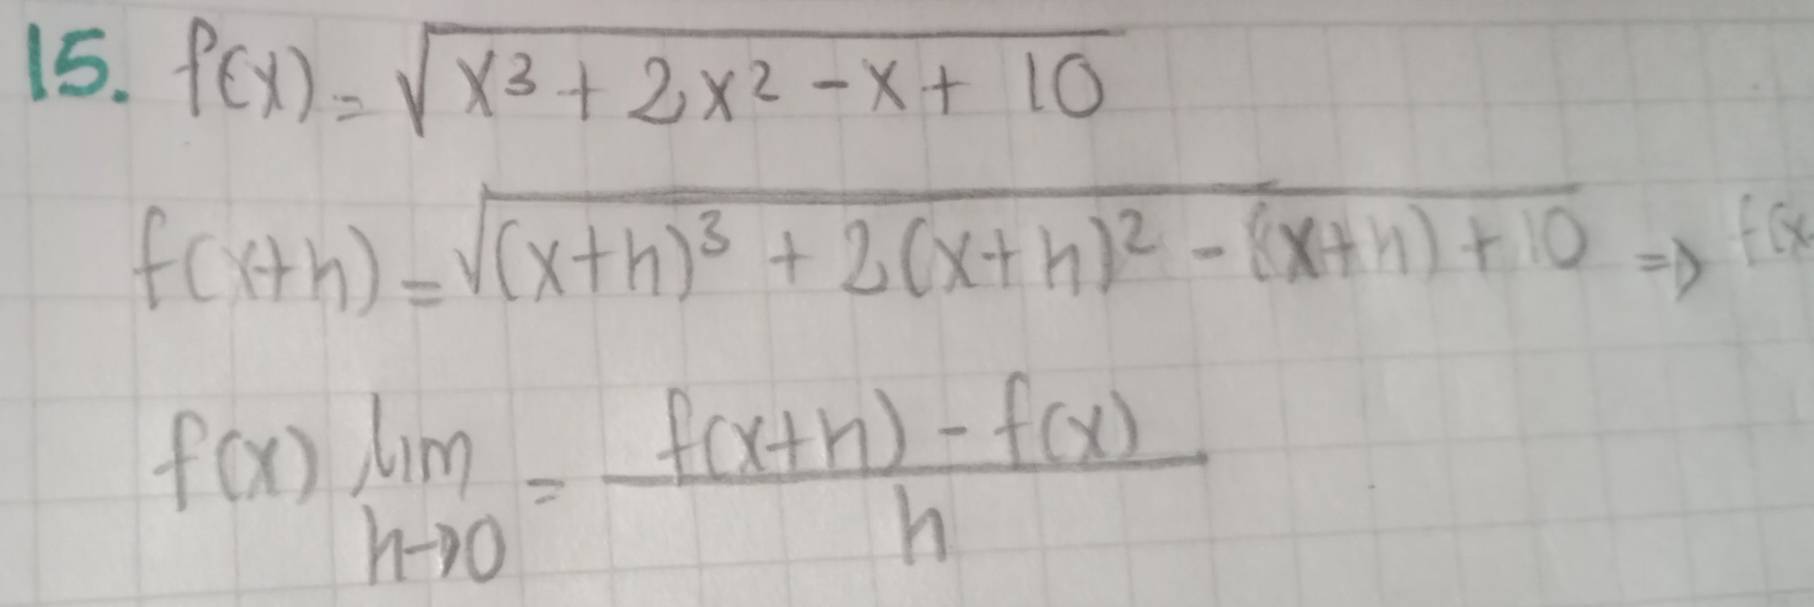 15. f(x) = √(x³ + 2x² - x + 10)
f(x+h) = √((x+h)³ + 2(x+h)² - (x+h) + 10) ⇒ f(x
f(x) lim h→0 = (f(x+h) - f(x)) / h